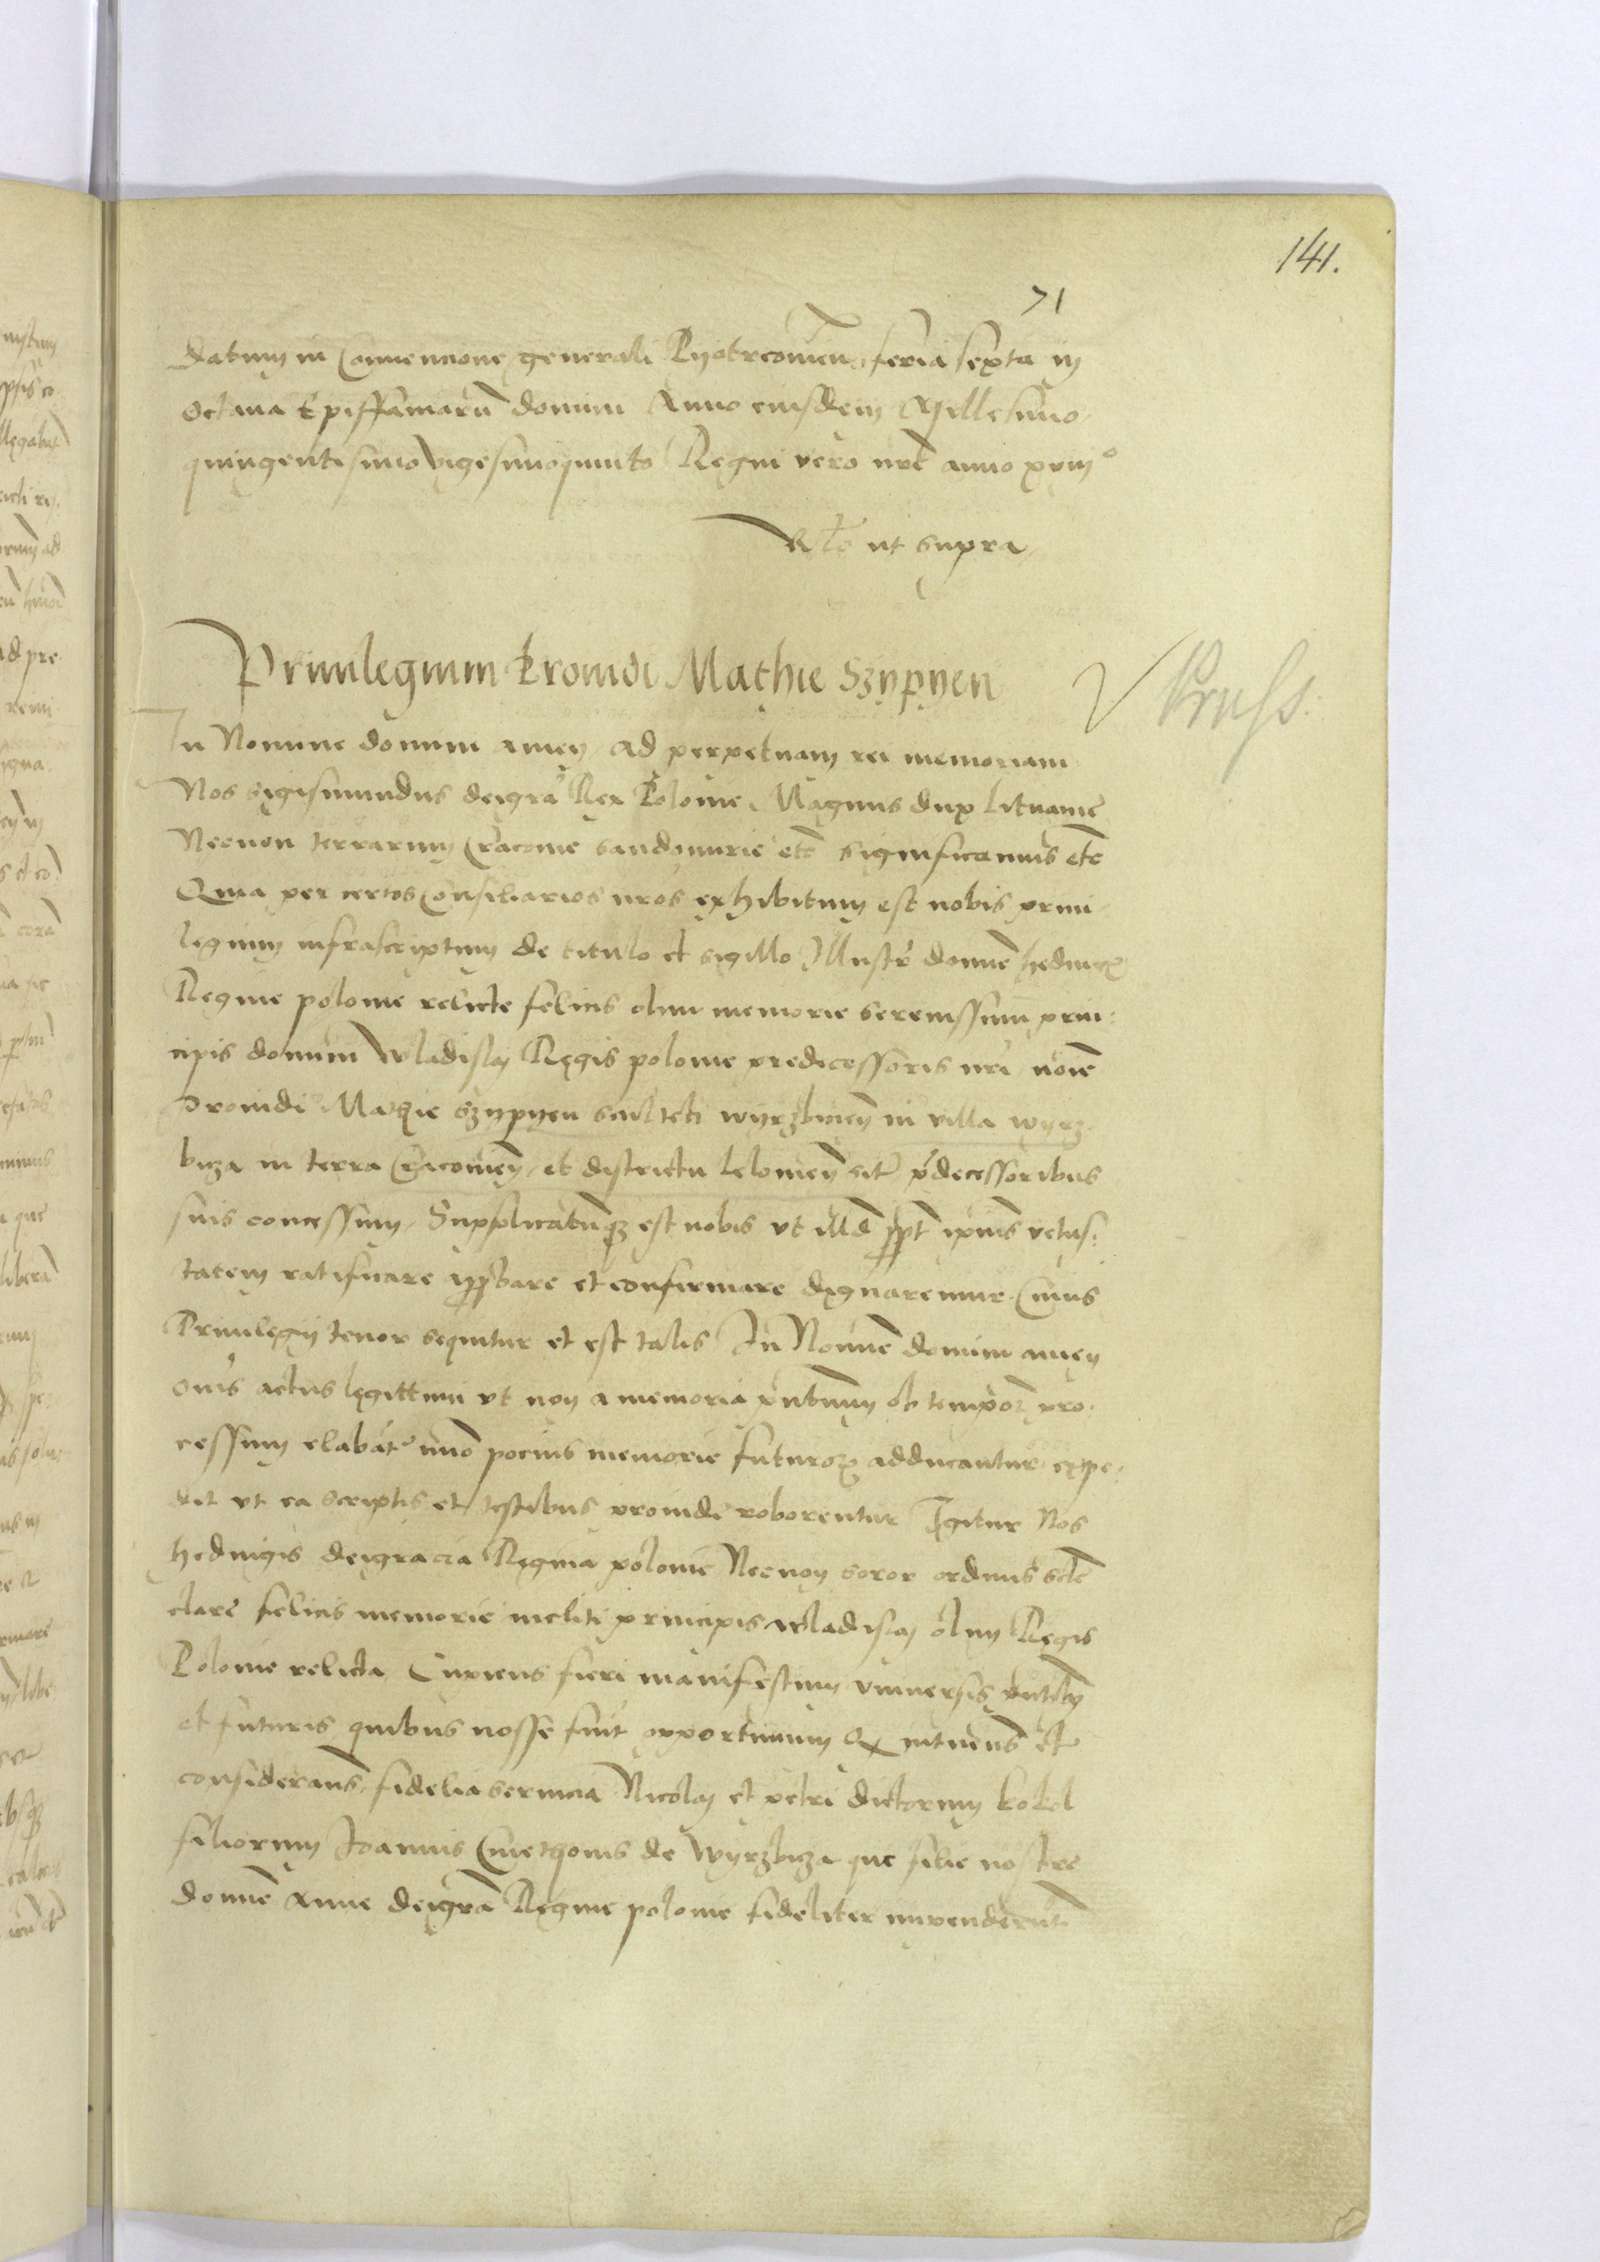 141.
71
datum in Conuencione generali Pyotrcouien, feria sexta in
octaua Epiffaniarũ domini Anno eiusdem Millesimo
quingentesimo vigesimoquinto Regni vero nrĩ anno xviii°
ut supra
Priuilegium Prouidi Mathie Szypyen
Pruss
In Nomine domini amen, ad perpetuam rei memoriam
Nos Sigismundus deigrã Rex Polonie, Magnus dux Lituanie
Necnon terrarum Cracouie Sandomirie etc̃ significamus etc̃
Quia per certos Consiliarios nros exhibitum est nobis priui-
legium infrascriptum de titulo et sigillo Illustr̃ domine hedwigis
Regine polonie relicte felicis olim memorie serenissimi prin-
cipis domini Wladislaj Regis polonie predecessoris nri noĩe
Prouidi Mathie Szypyen sculteti wyrzbicen̄ in villa wyrz-
bicza in terra Cracouien̄ et districtu Lelouien̄ siť p̃decessoribus
suis concessum, Supplicatumq₃ est nobis vt illd̃ ppt̃ ipius vetus-
tatem ratificare approbare et confirmare dignaremur. Cuius
Priuilegij tenor sequitur et est talis In Nomine domini amen
Om̃s actus legittimi vt non a memoria p̃ntium ob tempor̃ pro-
cessum elabãt̃ imo pocius memorie futuror̃ adducantur expe-
dit vt ea scriptis et testibus prouide roborentur Igitur Nos
hedwigis deigracia Regina polonie Necnon soror ordinis scte
clare felicis memorie incliti principis Wladislaj olim Regis
Polonie relicta, Cupiens fieri manifestum vniuersis p̃ntibus
et futuris quibus nosse fuit opportunum Q intuens et
considerans, fidelia seruicia Nicolaj et petri dictorum kokol
filiorum Joannis Cmethonis de wyrzbicza que filie nostre
domine Anne deigrã Regine polonie fideliter impenderunt